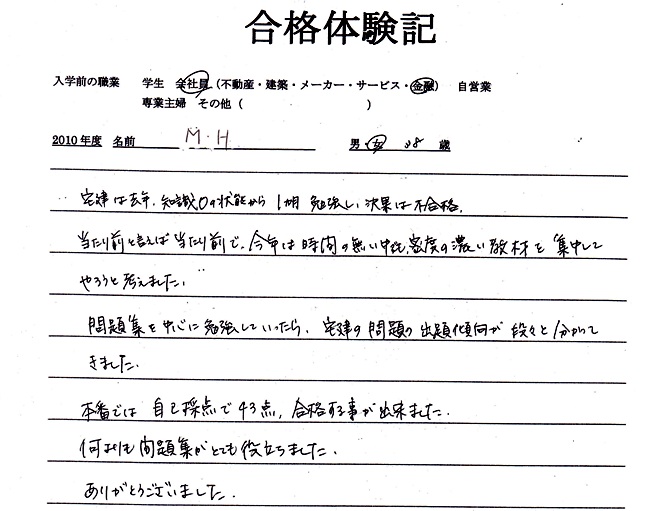 合格体験記
入学前の職業 学生 会社員(不動産・建築・メーカー・サービス・金融) 自営業
専業主婦 その他( )
2010年度 名前 M・H 男・女 28 歳
宅建は去年、知識0の状態から1ヶ月勉強し、結果は不合格。
当たり前と言えば当たり前で、今年は時間の無い中、密度の濃い教材を集中して
やろうと考えました。
問題集を中心に勉強していったら、宅建の問題の出題傾向が段々と分かって
きました。
本番では自己採点で43点、合格する事が出来ました。
何よりも問題集がとても役立ちました。
ありがとうございました。